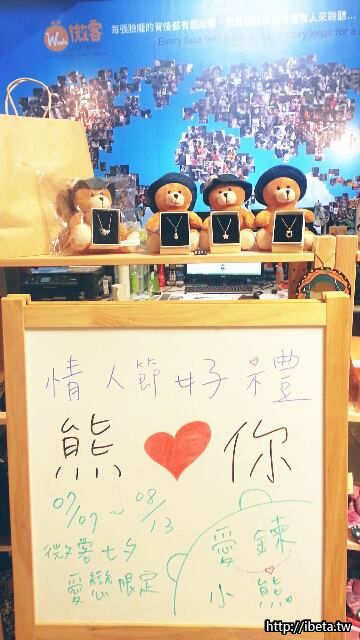 Wake 微客
每張臉龐的背後都有個故事,
有人來聆聽...
Every face tells a story longs for a
情人節好禮
熊 ♥ 你
07/07~08/13
微客七夕
愛戀限定
愛鍊
小熊
http://ibeta.tw